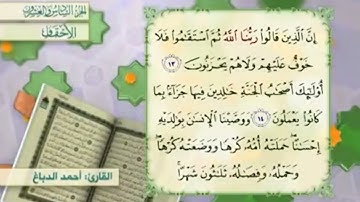 الجزء السادس والعشرون
الأحقاف
إِنَّ ٱلَّذِينَ قَالُوا۟ رَبُّنَا ٱللَّهُ ثُمَّ ٱسْتَقَـٰمُوا۟ فَلَا
خَوْفٌ عَلَيْهِمْ وَلَا هُمْ يَحْزَنُونَ ١٣
أُو۟لَـٰٓئِكَ أَصْحَـٰبُ ٱلْجَنَّةِ خَـٰلِدِينَ فِيهَا جَزَآءًۢ بِمَا
كَانُوا۟ يَعْمَلُونَ ١٤ وَوَصَّيْنَا ٱلْإِنسَـٰنَ بِوَٰلِدَيْهِ
إِحْسَـٰنًا حَمَلَتْهُ أُمُّهُۥ كُرْهًا وَوَضَعَتْهُ كُرْهًا
وَحَمْلُهُۥ وَفِصَـٰلُهُۥ ثَلَـٰثُونَ شَهْرًا
القارئ: أحمد الدباغ